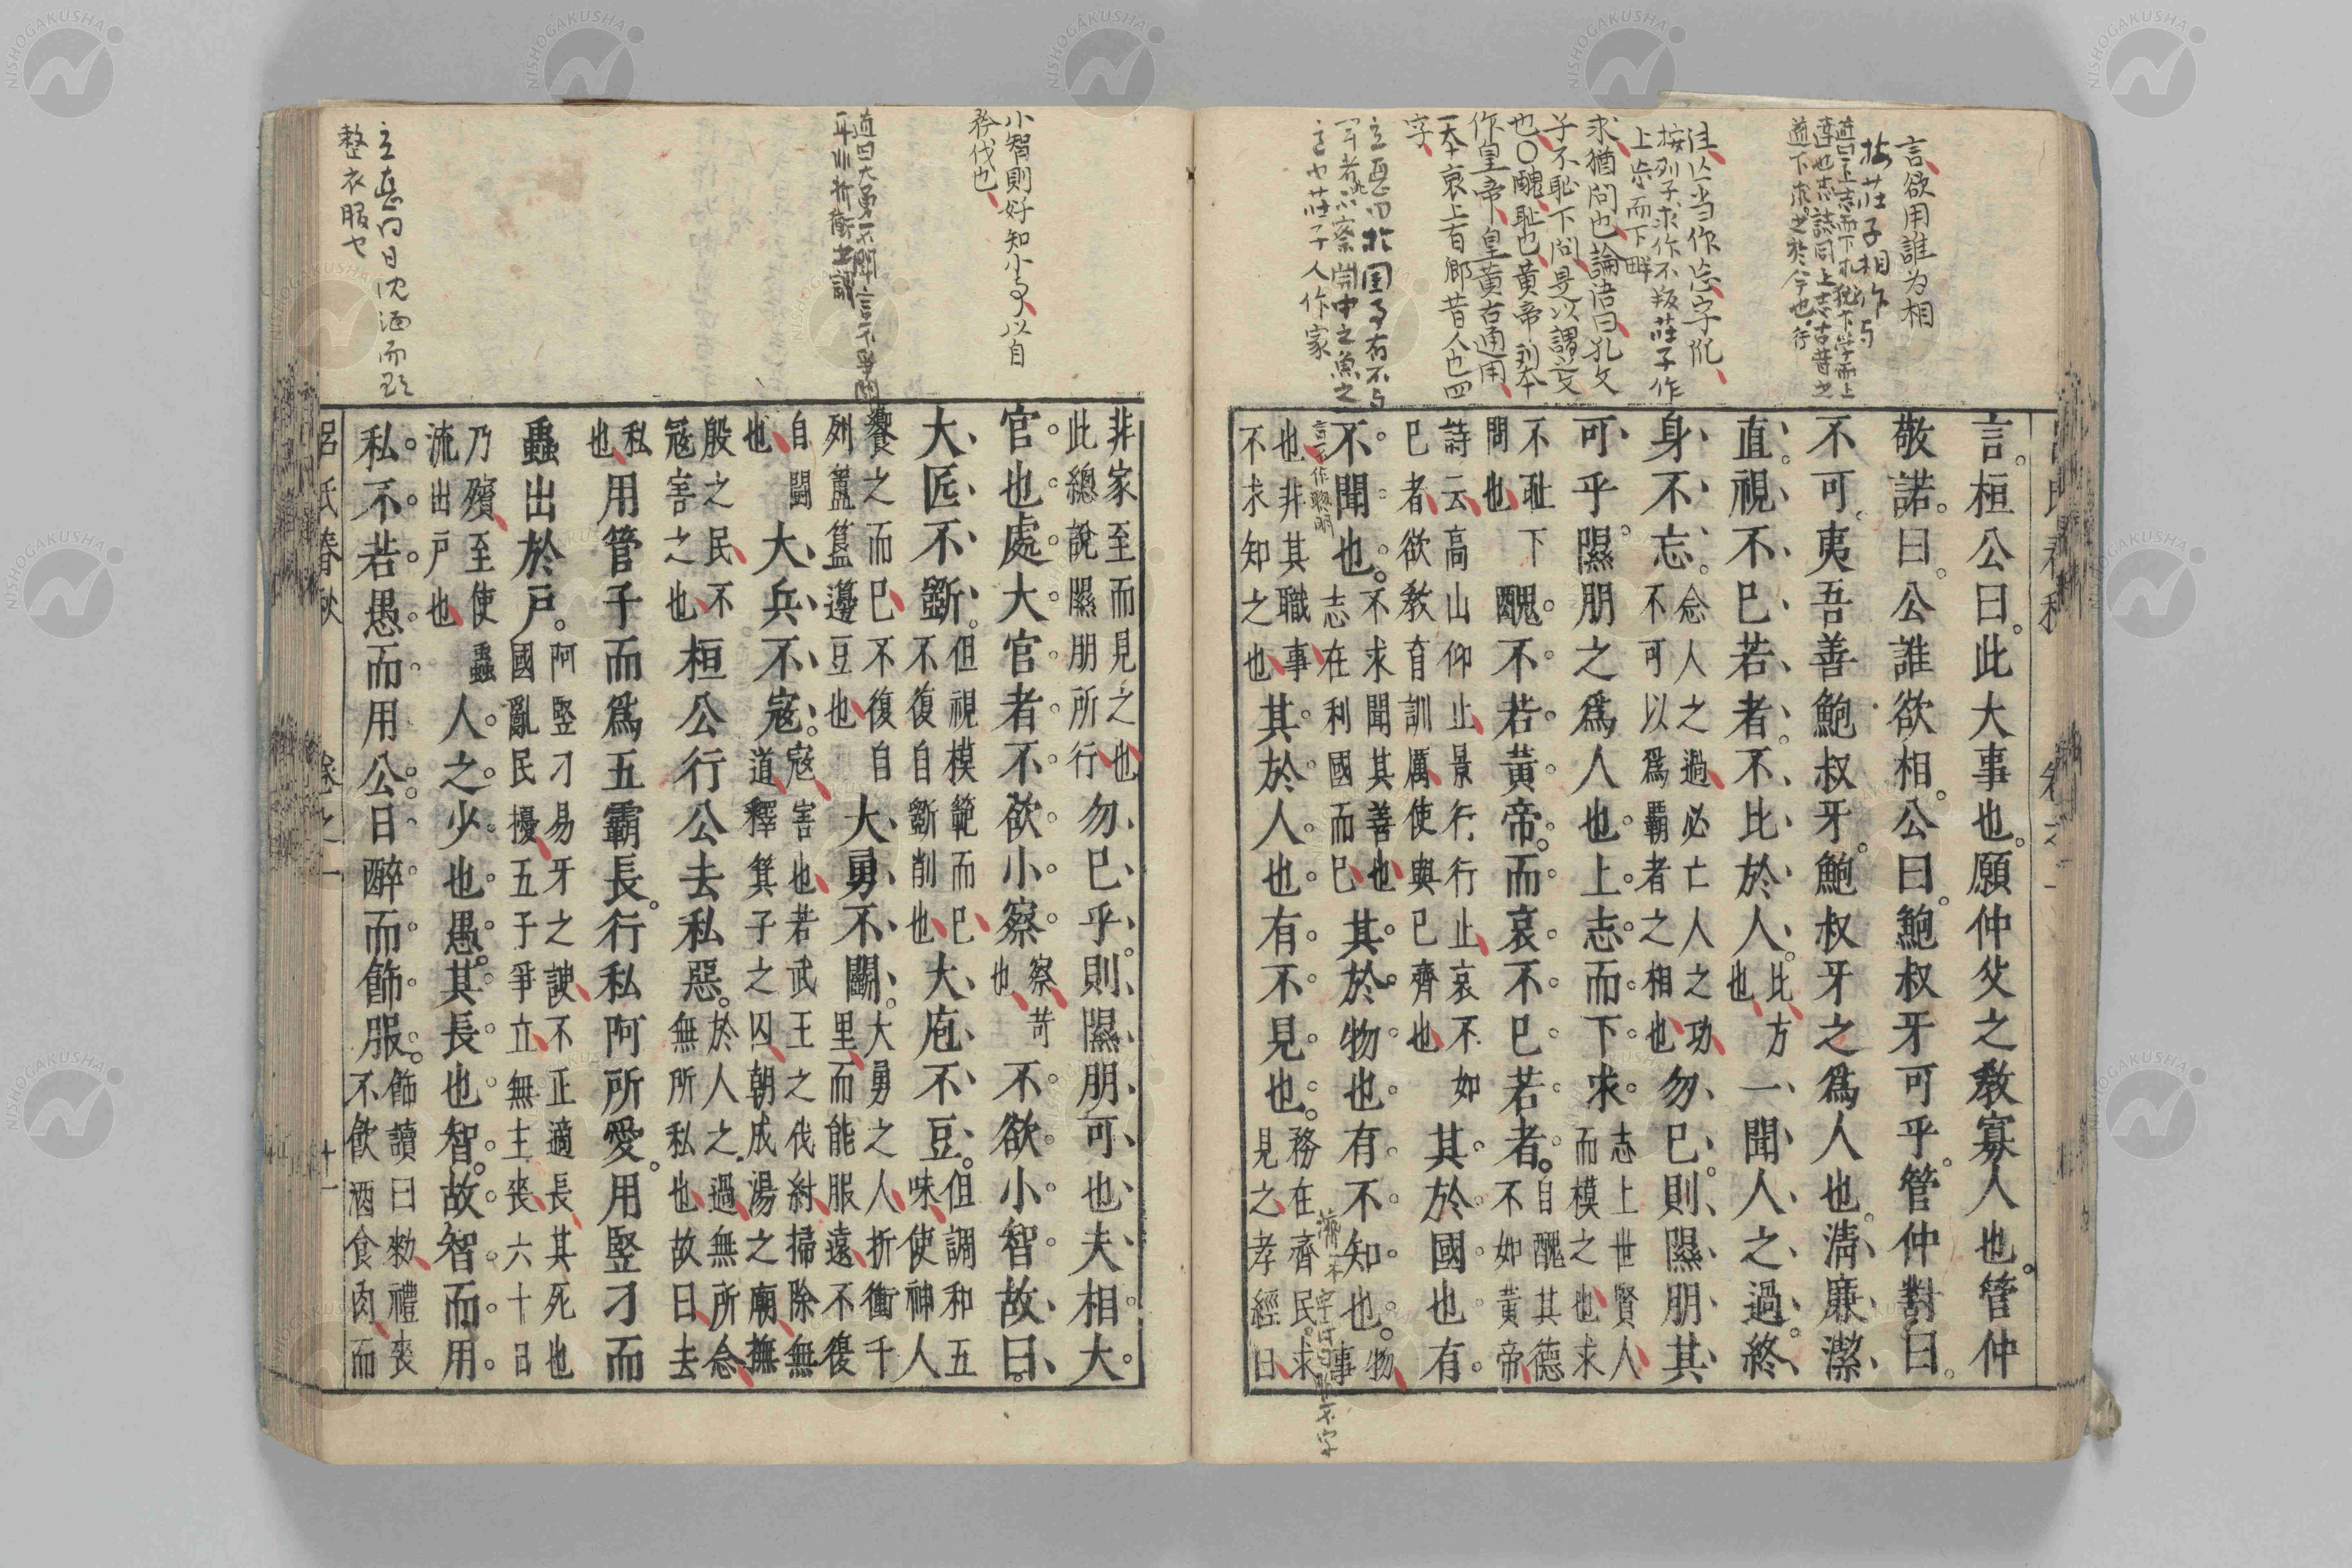 言欲用誰为相
注亡当作忘字阮
按列子求作不叛莊子作
上忘而下畔
求猶問也論語曰孔文
子不恥下問是以謂之文
也〇醜恥也黃帝別本
作皇帝皇黃古通用
一本哀上有郎昔人也四
字
言桓公曰此大事也願仲父之教寡人也管仲
敬諾曰公誰欲相公曰鮑叔牙可乎管仲對曰
不可夷吾善鮑叔牙鮑叔牙之爲人也淸廉潔
直視不已若者不比於人比方也一聞人之過終
身不忘念人之過必亡人之功不可以爲霸者之相也勿已則隰朋其
可乎隰朋之爲人也上志而下求志上世賢人而模之也求
不恥下問也醜不若黃帝而哀不已若者自醜其德不如黃帝
詩云高山仰止景行行止哀不如已者欲敎育訓厲使與已齊也其於國也有
不聞也不求聞其善也志在利國而已其於物也有不知也物事
也非其職事不求知之也其於人也有不見也務在濟民求見之孝經曰
小智則好知小事以自
矜伐也
道曰大勇不鬭言不爭鬭
耳非折衝之謂
立意曰日沈湎而臤
整衣服也
非家至而見之也此總說隰朋所行勿已乎則隰朋可也夫相大
官也處大官者不欲小察察苛也不欲小智故曰
大匠不斲但視模範而已不復自斲削也大庖不豆但調和五味使神人
饗之而已不復自列簠簋籩豆也大勇不鬭大勇之人折衝千里而能服遠不復
自鬬也大兵不寇寇害也若武王之伐紂掃除無道釋箕子之囚朝成湯之廟撫
殷之民不寇害之也桓公行公去私惡於人之過無所念無所私也故曰去
私也用管子而爲五霸長行私阿所愛用豎刁而
蟲出於戸阿豎刁易牙之諛不正適長其死也國亂民擾五子爭立無主喪六十日
乃殯至使蟲流出戸也人之少也愚其長也智故智而用
私不若愚而用公日醉而飾服飾讀曰勑禮喪不飮酒食肉而
呂氏春秋 卷之一 十一